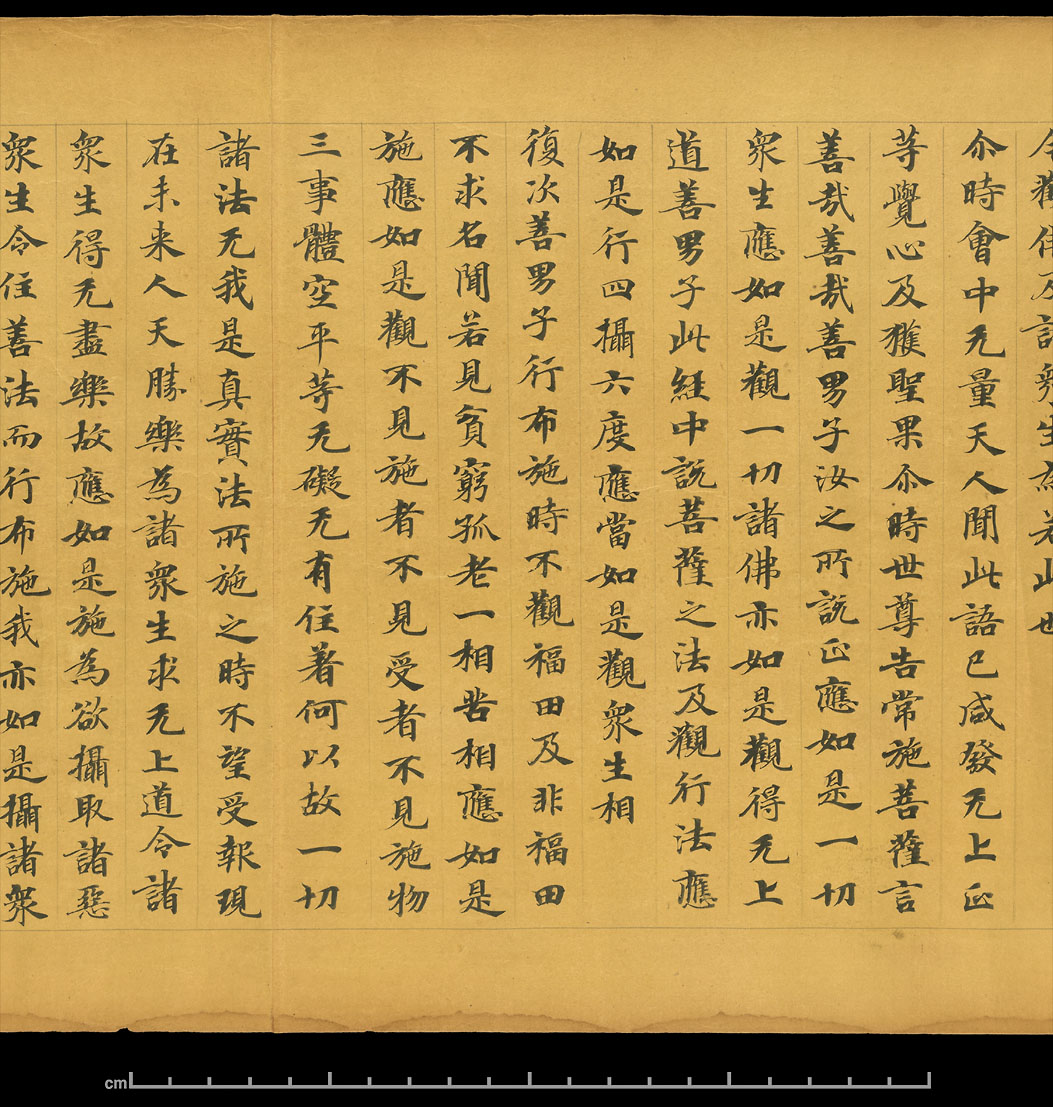 及衆生若此也
尒時會中无量天人聞此語已咸發无上正
等覺心及獲聖果尒時世尊告常施菩薩言
善哉善哉善男子汝之所説正應如是一切
衆生應如是觀一切諸佛亦如是觀得无上
道善男子此經中説菩薩之法及觀行法應
如是行四攝六度應當如是觀衆生相
復次善男子行布施時不觀福田及非福田
不求名聞若見貧窮孤老一相苦相應如是
施應如是觀不見施者不見受者不見施物
三事體空平等无礙无有住著何以故一切
諸法无我是真實法所施之時不望受報現
在未来人天勝樂為諸衆生求无上道令諸
衆生得无盡樂故應如是施為欲攝取諸惡
衆生令住善法而行布施我亦如是攝諸衆
cm